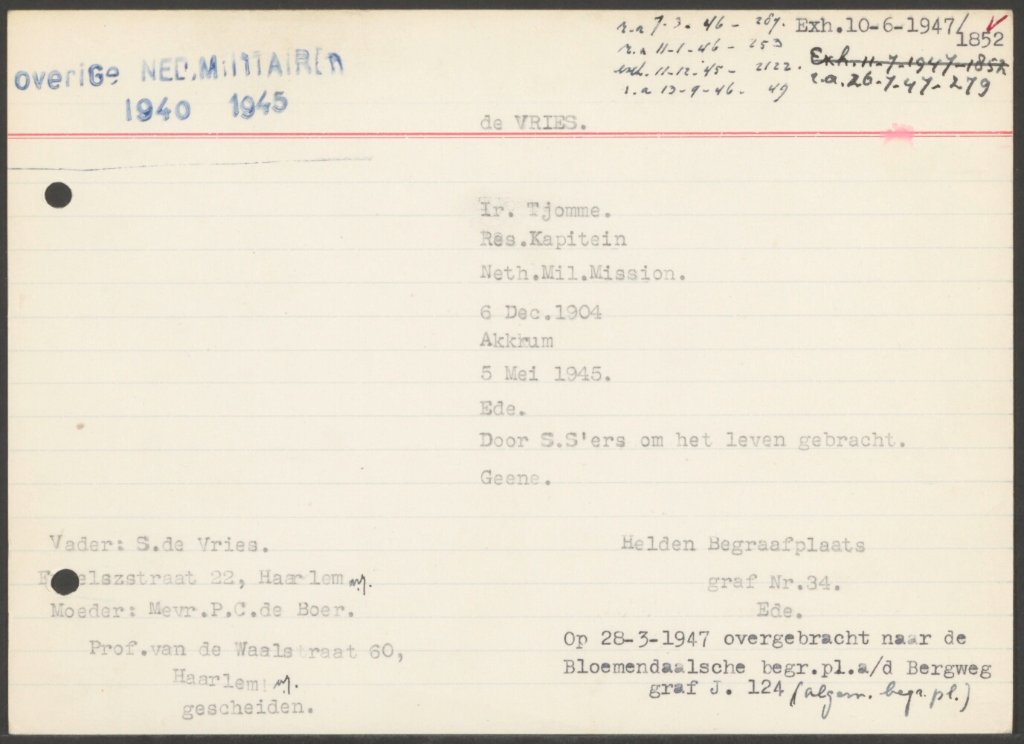 overige NED.MILITAIREN
1940 1945
r.a 7-3-46 - 289.
r.a 11-1-46 - 253
exh. 11-12-45 - 2122.
r.a 13-9-46 - 49
Exh.10-6-1947/1852
Exh.11-7-1947-1852
r.a.26-7-47-279
de VRIES.
Ir. Tjomme.
Res.Kapitein
Neth.Mil.Mission.
6 Dec.1904
Akkrum
5 Mei 1945.
Ede.
Door S.S'ers om het leven gebracht.
Geene.
Vader: S.de Vries.
22, Haarlem
Moeder: Mevr.P.C.de Boer.
Prof.van de Waalstraat 60,
Haarlem
gescheiden.
Helden Begraafplaats
graf Nr.34.
Ede.
Op 28-3-1947 overgebracht naar de
Bloemendaalsche begr.pl.a/d Bergweg
graf J. 124 (algem. begr.pl.)